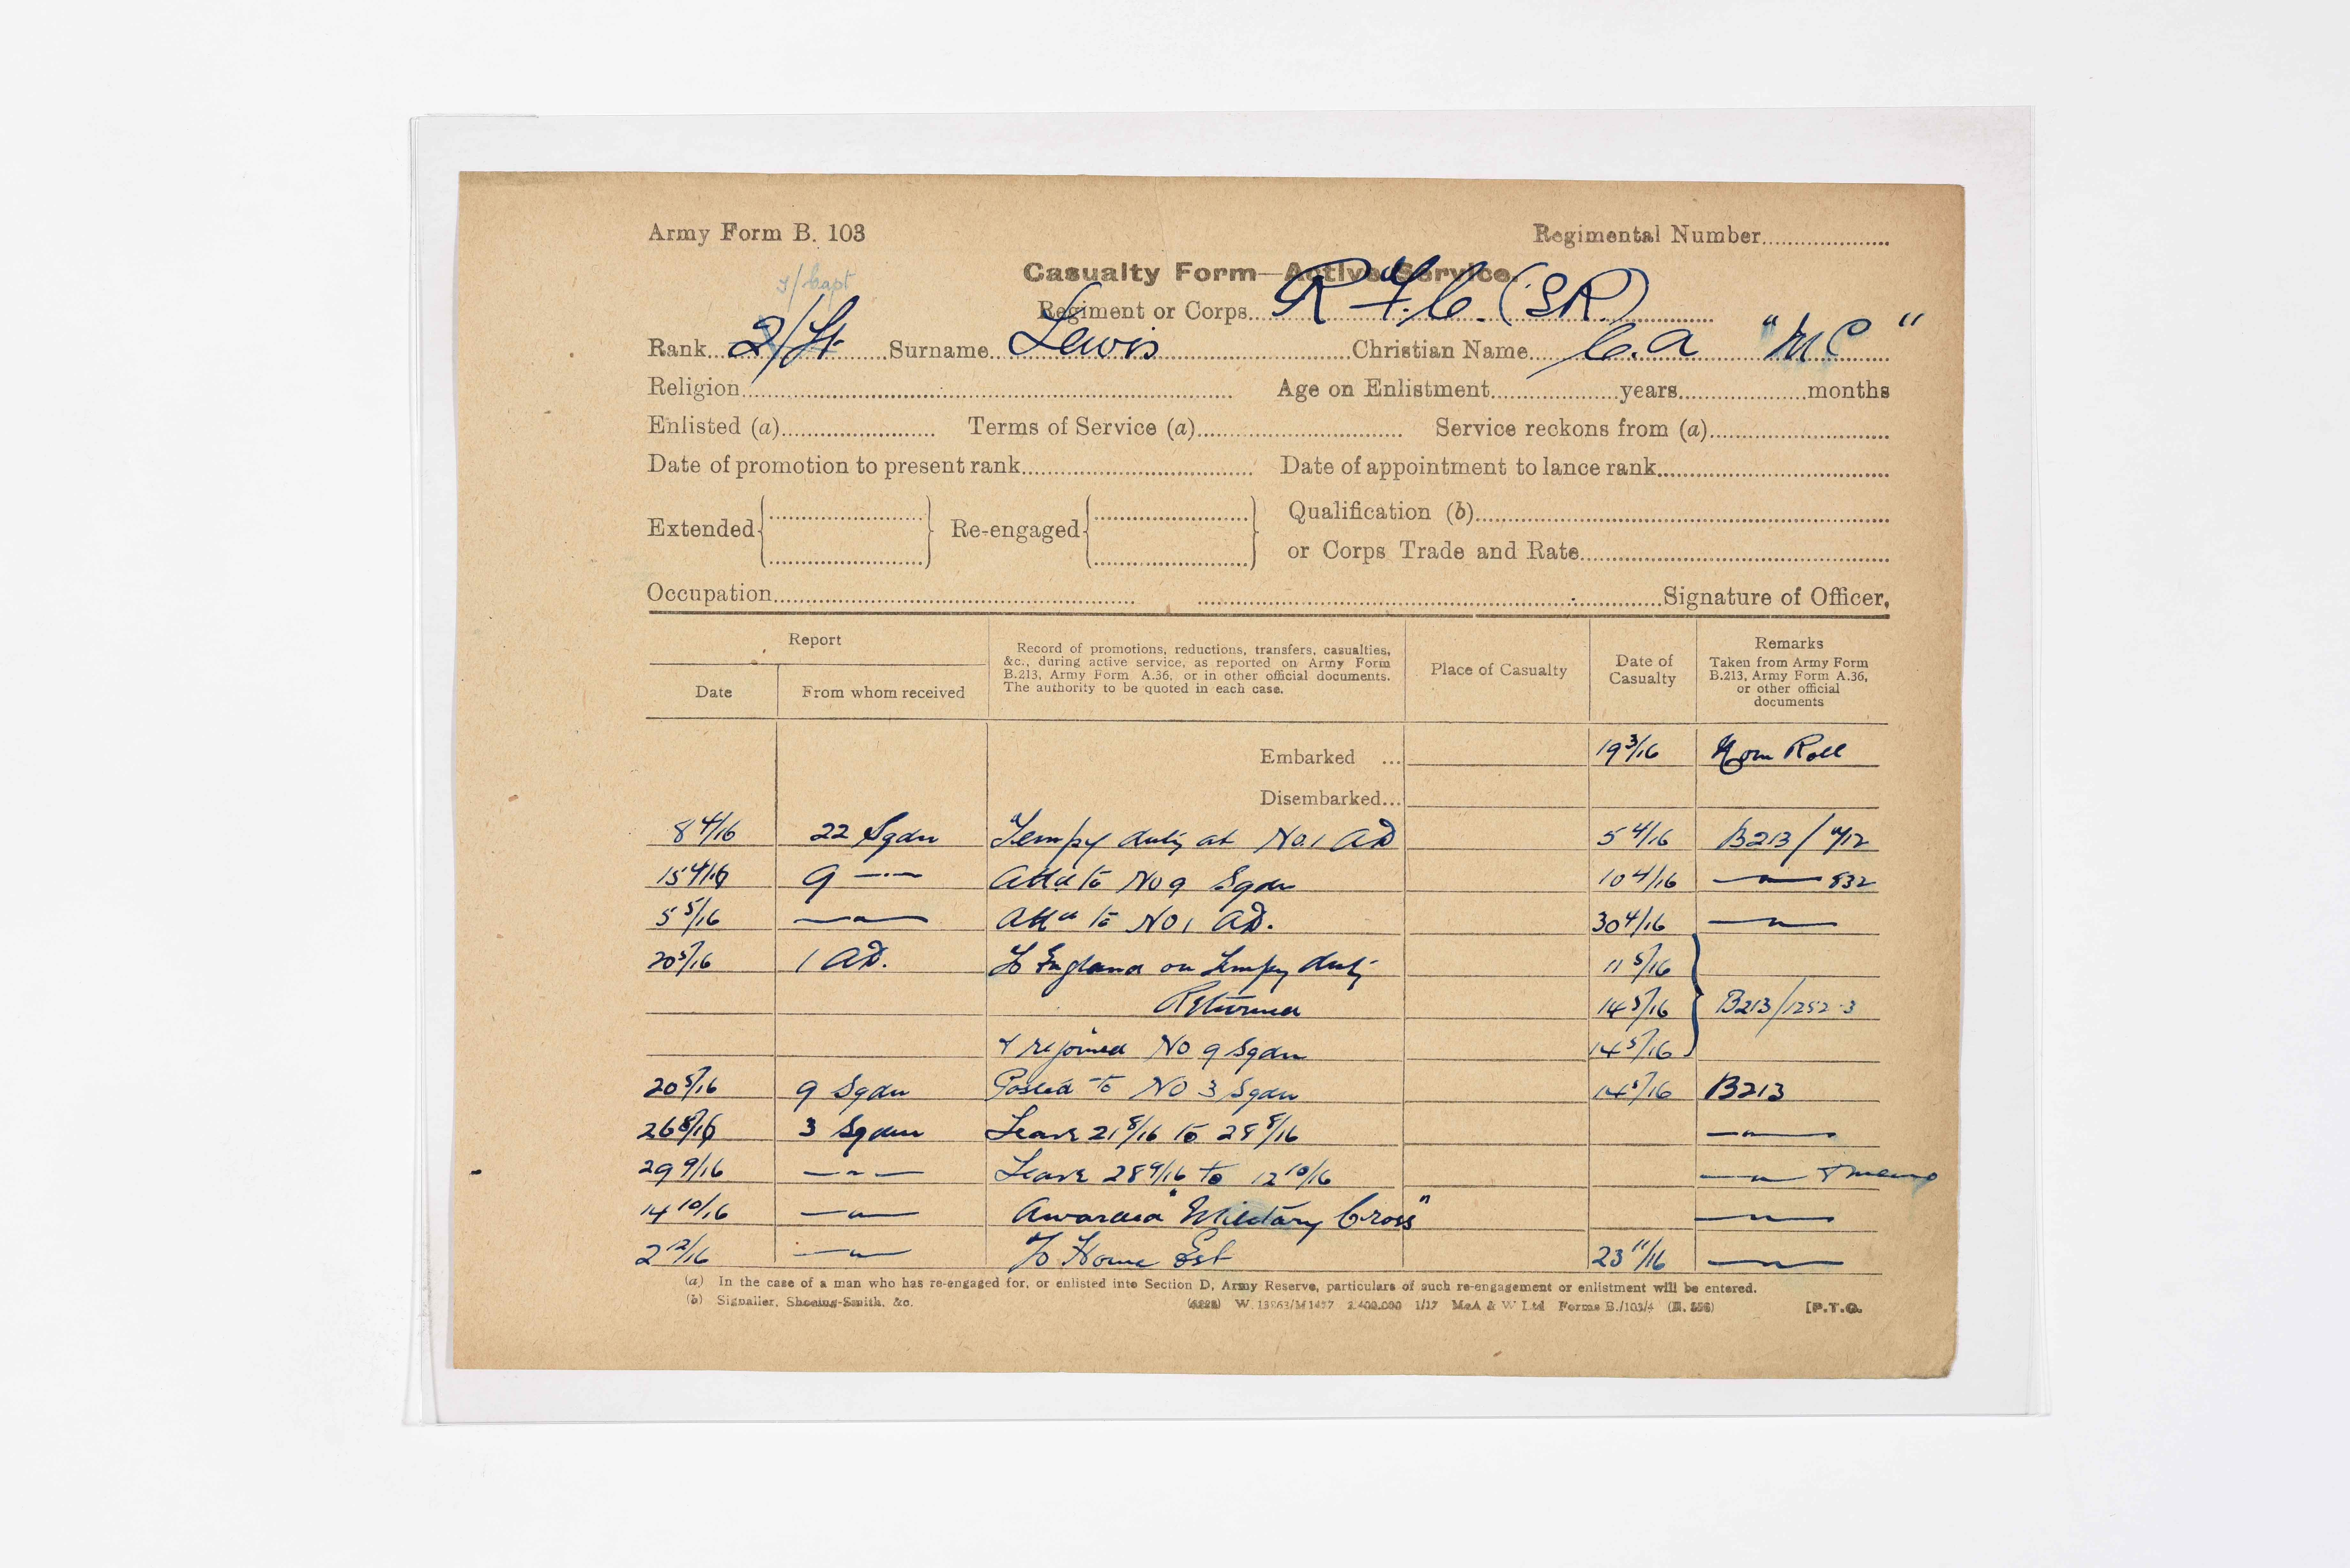 Army Form B. 103 Regimental Number
Casualty Form—Active Service.
T/Capt
Regiment or Corps R.F.C. (SR)
Rank 2/Lt Surname Lewis Christian Name C.A "MC"
Religion Age on Enlistment years months
Enlisted (a) Terms of Service (a) Service reckons from (a)
Date of promotion to present rank Date of appointment to lance rank
Extended Re-engaged Qualification (b)
or Corps Trade and Rate
Occupation Signature of Officer.
Report
Date From whom received
Record of promotions, reductions, transfers, casualties, &c., during active service, as reported on Army Form B.213, Army Form A.36, or in other official documents. The authority to be quoted in each case.
Place of Casualty
Date of Casualty
Remarks Taken from Army Form B.213, Army Form A.36, or other official documents
Embarked ... 19 3/16 Nom Roll
Disembarked...
8 4/16 22 Sqdn Tempy duty at No.1 AD 5 4/16 B213/
15 4/16 9 —"— Attd to No 9 Sqdn 10 4/16 —"— 832
5 5/16 —"— Attd to No 1 AD. 30 4/16 —"—
20 5/16 1 AD. To England on tempy duty 11 5/16
Returned 14 5/16 B213/1252-3
& rejoined No 9 Sqdn 14 5/16
20 5/16 9 Sqdn Posted to No 3 Sqdn 14 5/16 B213
26 8/16 3 Sqdn Leave 21 8/16 to 28 8/16 —"—
29 9/16 —"— Leave 28 9/16 to 12 10/16 —"— & memo
14 10/16 —"— Awarded "Military Cross" —"—
2 12/16 —"— To Home Est 23 11/16 —"—
(a) In the case of a man who has re-engaged for, or enlisted into Section D, Army Reserve, particulars of such re-engagement or enlistment will be entered.
(b) Signaller, Shoeing-Smith, &c. W. 13863/M1477 2,400,000 1/17 McA & W Ltd Forms B./103/4 [P.T.O.